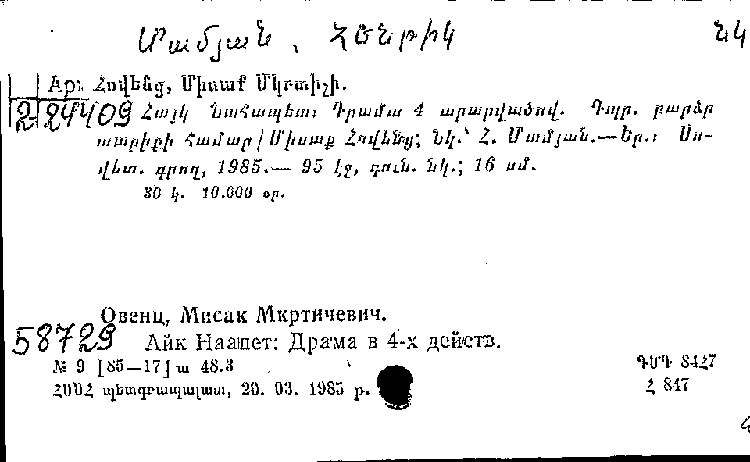 Մամյան, Հենրիկ նկ
Ար. Հովենց, Միսաք Մկրտիչի.
2 24409 Հայկ Նահապետ: Դրամա 4 արարվածով. Դպր. բարձր
տարիքի համար / Միսաք Հովենց; նկ.՝ Հ. Մամյան.—Եր.: Սո-
վետ. գրող, 1985.— 95 էջ, գուն. նկ.; 16 սմ.
30 կ. 10.000 օր.
Овенц, Мисак Мкртичевич.
58729 Айк Наапет: Драма в 4-х действ.
№ 9 [85—17] ա 48.3 ԳՄԴ 84Հ7
ՀՍՍՀ պետգրապալատ, 20. 03. 1985 թ. Հ 847